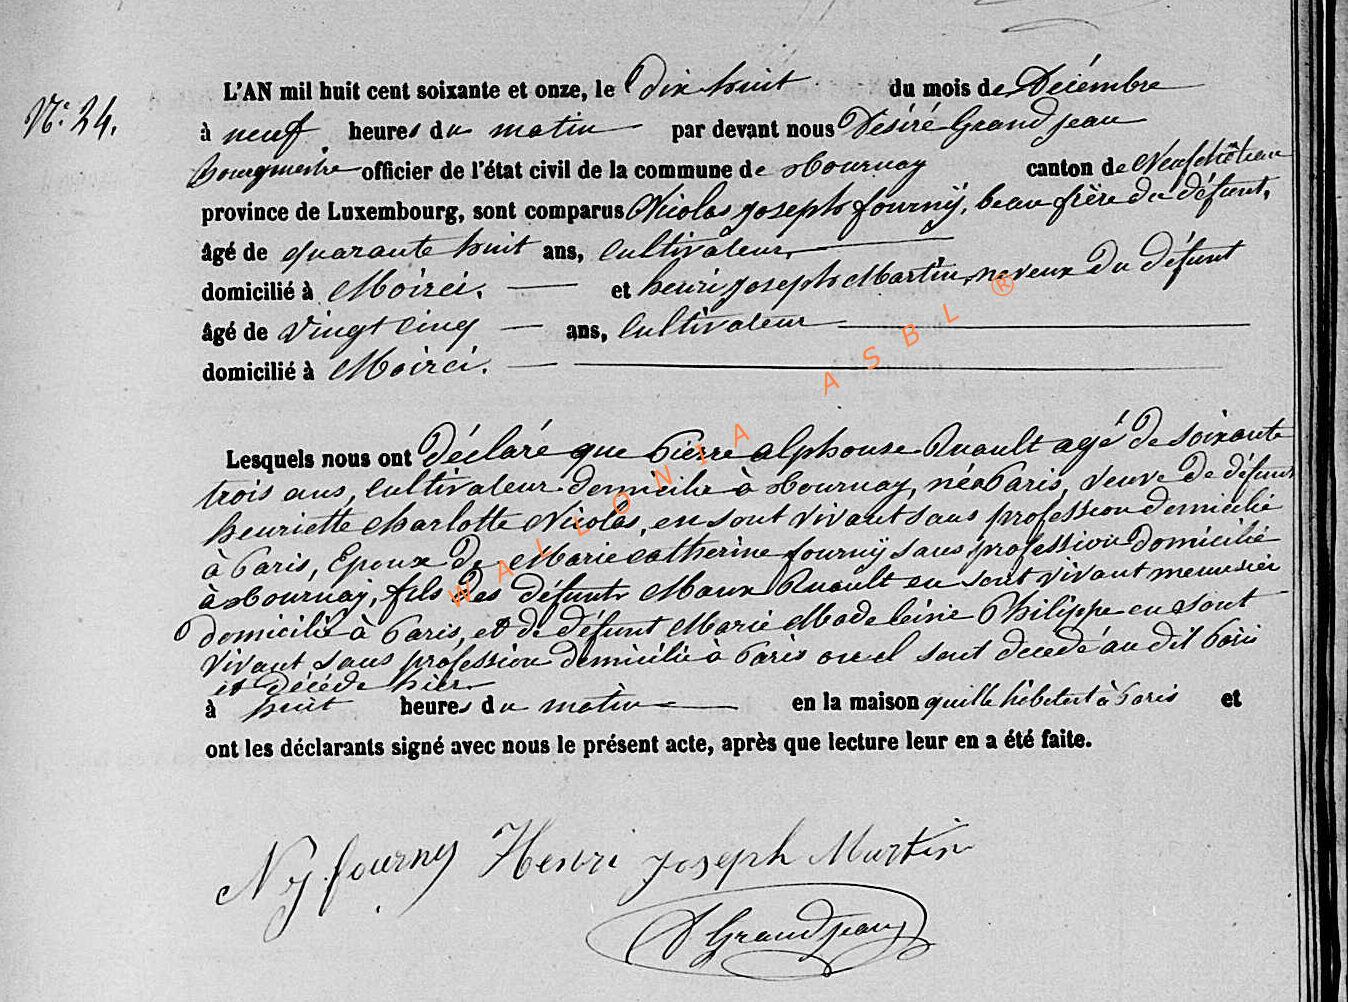 N° 24.
L'AN mil huit cent soixante et onze, le Dix huit du mois de Décémbre
à neuf heures du matin par devant nous Désiré Grandjean
bourgmestre officier de l'état civil de la commune de Tournay canton de Neufchâteau
province de Luxembourg, sont comparus Nicolas joseph fourny, beau frère du défunt,
âgé de quarante huit ans, cultivateur,
domicilié à Moirci, et henri joseph Martin, neveux du défunt
âgé de vingt cinq ans, cultivateur
domicilié à Moirci.
Lesquels nous ont Déclaré que Pierre alphonse Ruault agé de soixante
trois ans, cultivateur domicilié à Tournay, né à Paris, veuve de défunt
henriette charlotte Nicolas, en sont vivant sans profession domicilié
à Paris, Epoux de Marie catherine fourny sans profession domicilié
à Tournay, fils des défunts Ruault en sont vivant menuisier
domicilié à Paris, et de défunt Marie Madeleine Philippe en sont
vivant sans profession domicilié à Paris ou el sont décédé au dit Paris
et décédé hier
à huit heures du matin en la maison quille hàbitent à Paris et
ont les déclarants signé avec nous le présent acte, après que lecture leur en a été faite.
N j fourny Henri joseph Martin
D Grandjean
WALLONIA ASBL ®